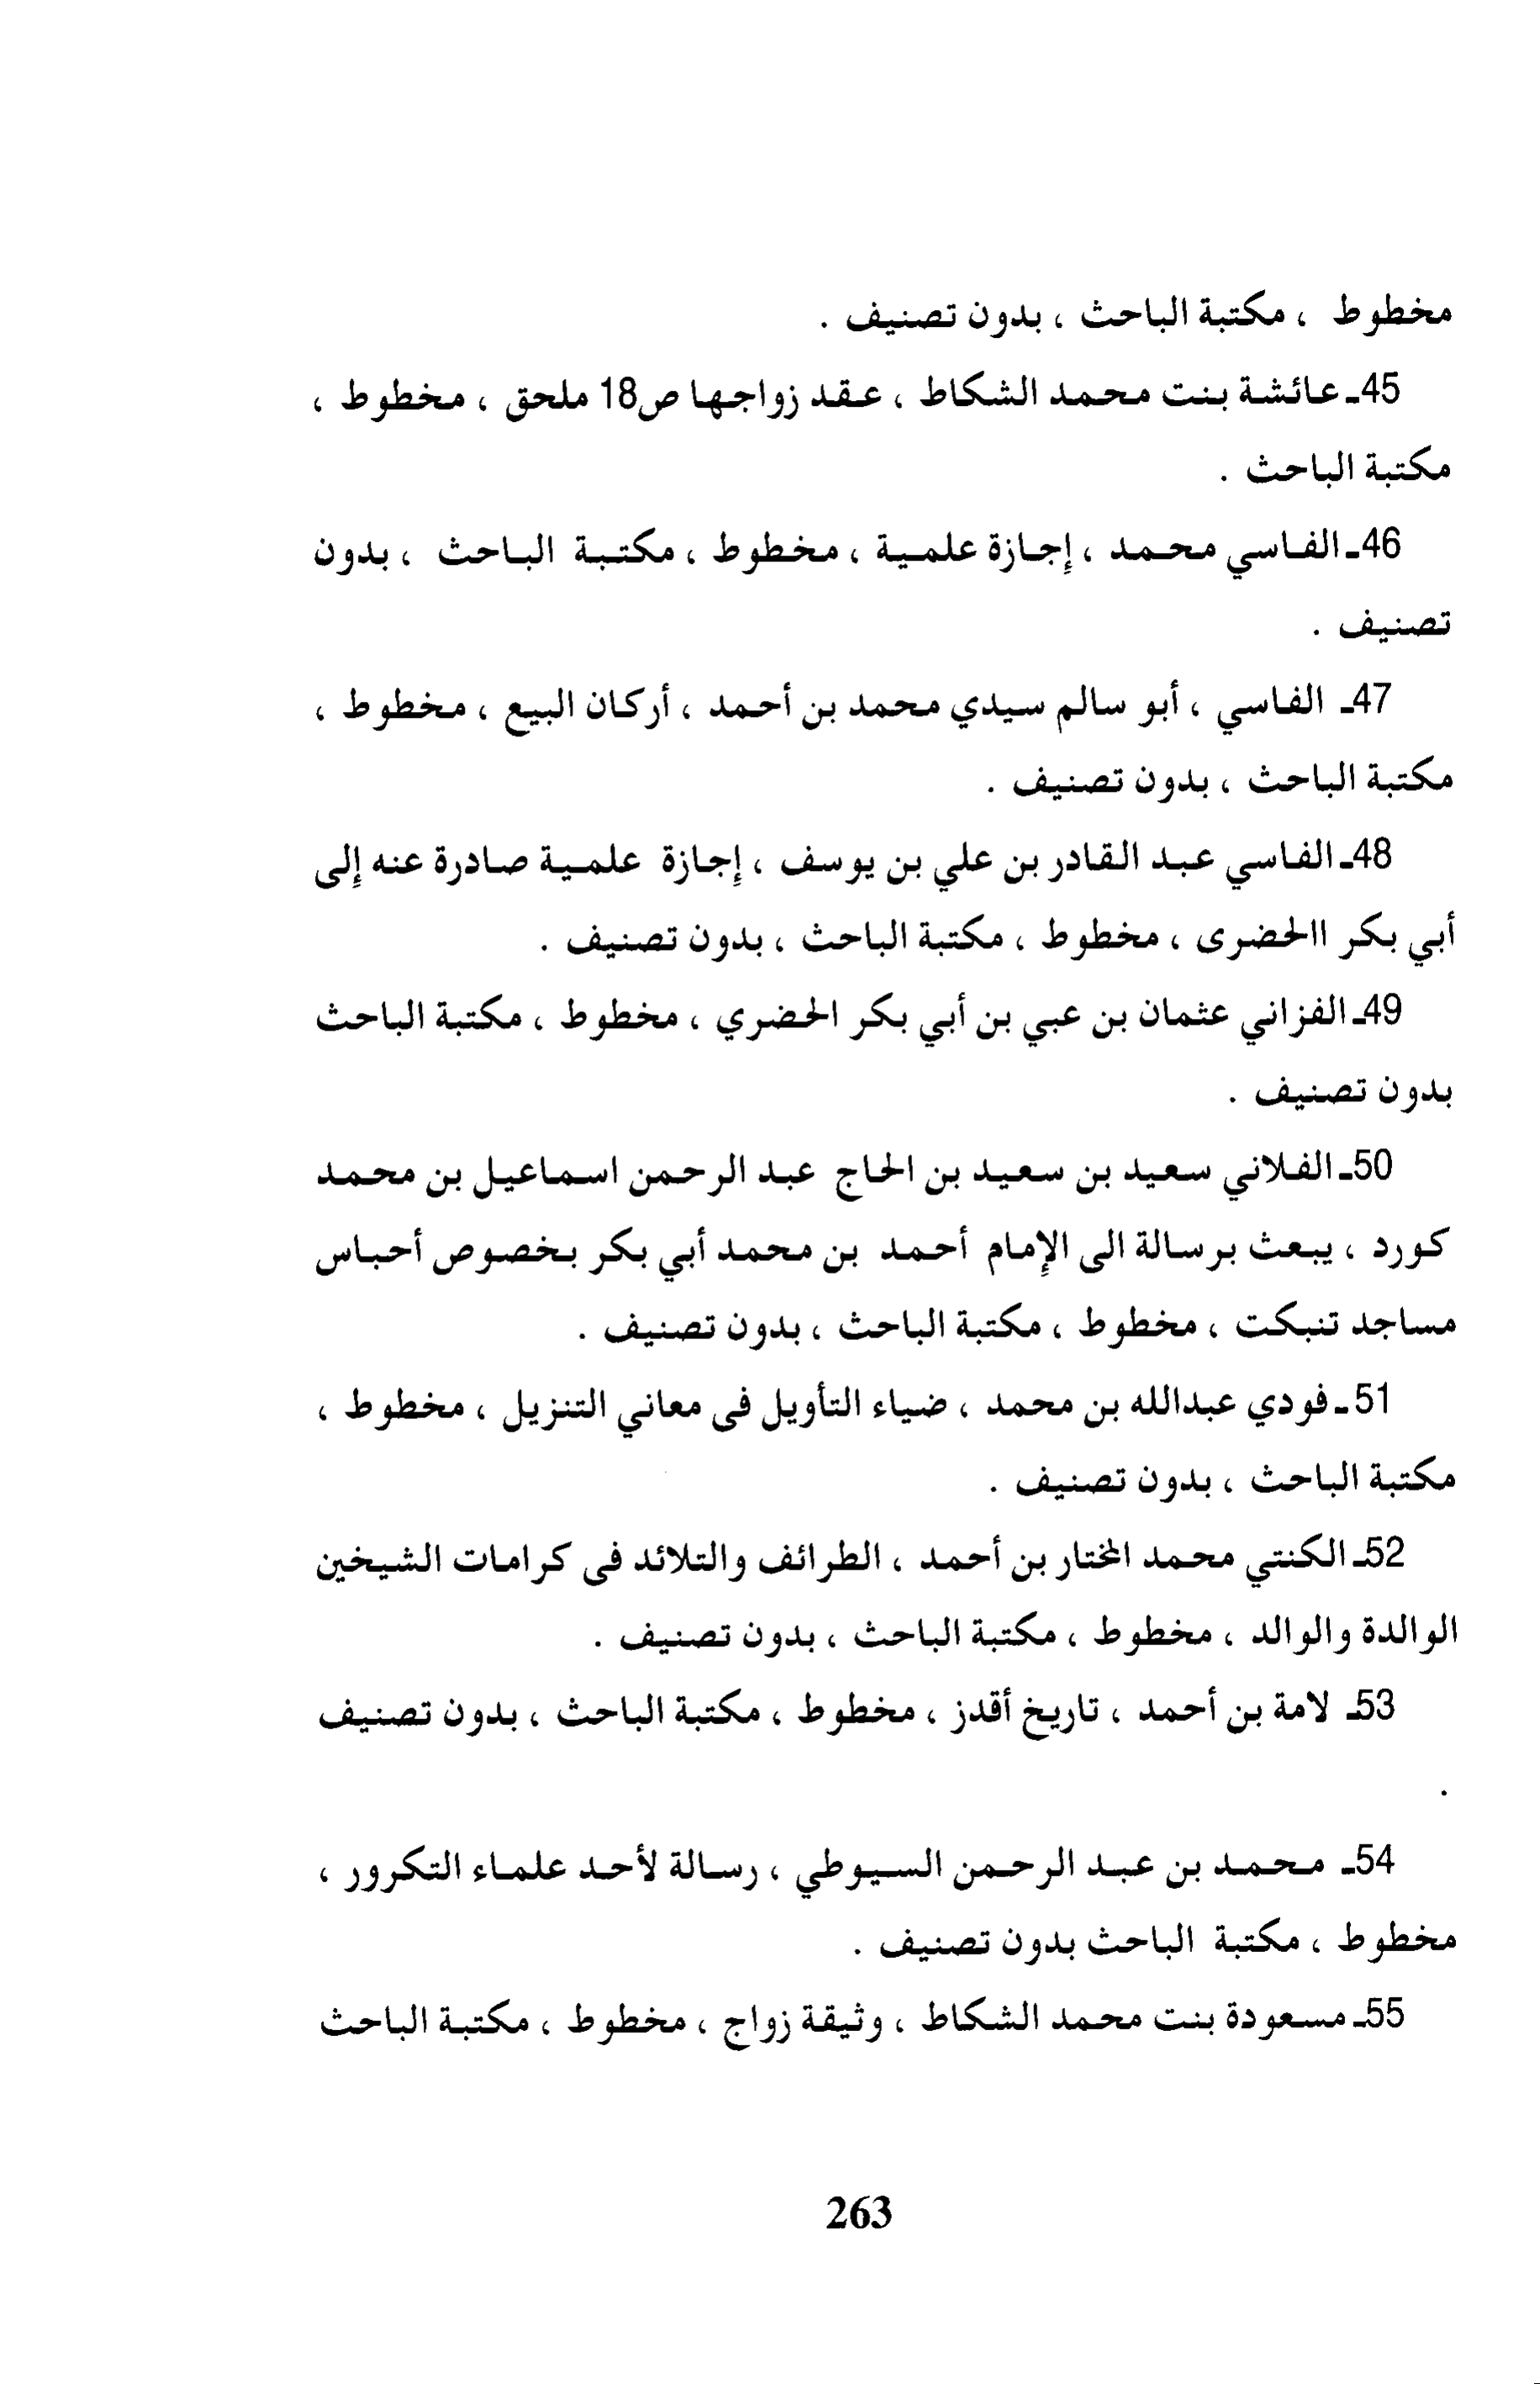 مخطوط ، مكتبة الباحث ، بدون تصنيف .
45ـ عائشة بنت محمد الشكاط ، عقد زواجها ص18 ملحق ، مخطوط ،
مكتبة الباحث .
46ـ الفاسي محمد ، إجازة علمية ، مخطوط ، مكتبة الباحث ، بدون
تصنيف .
47ـ الفاسي ، أبو سالم سيدي محمد بن أحمد ، أركان البيع ، مخطوط ،
مكتبة الباحث ، بدون تصنيف .
48ـ الفاسي عبد القادر بن علي بن يوسف ، إجازة علمية صادرة عنه إلى
أبي بكر االحضرى ، مخطوط ، مكتبة الباحث ، بدون تصنيف .
49ـ الفزاني عثمان بن عبي بن أبي بكر الحضري ، مخطوط ، مكتبة الباحث
بدون تصنيف .
50ـ الفلاني سعيد بن سعيد بن الحاج عبد الرحمن اسماعيل بن محمد
كورد ، يبعث برسالة الى الإمام أحمد بن محمد أبي بكر بخصوص أحباس
مساجد تنبكت ، مخطوط ، مكتبة الباحث ، بدون تصنيف .
51ـ فودي عبدالله بن محمد ، ضياء التأويل فى معاني التنزيل ، مخطوط ،
مكتبة الباحث ، بدون تصنيف .
52ـ الكنتي محمد المختار بن أحمد ، الطرائف والتلائد فى كرامات الشيخين
الوالدة والوالد ، مخطوط ، مكتبة الباحث ، بدون تصنيف .
53ـ لامة بن أحمد ، تاريخ أقدز ، مخطوط ، مكتبة الباحث ، بدون تصنيف
.
54ـ محمد بن عبد الرحمن السيوطي ، رسالة لأحد علماء التكرور ،
مخطوط ، مكتبة الباحث بدون تصنيف .
55ـ مسعودة بنت محمد الشكاط ، وثيقة زواج ، مخطوط ، مكتبة الباحث
263